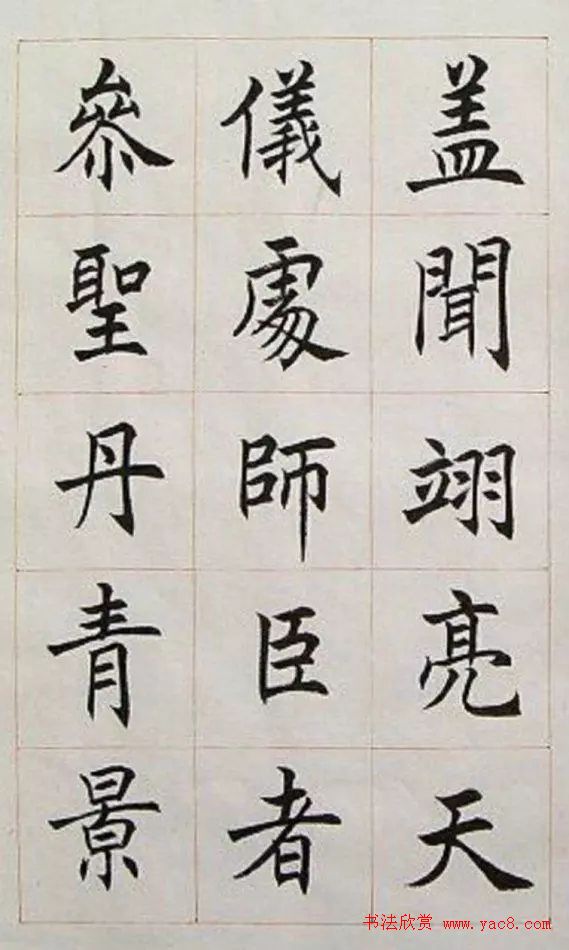 盖聞翊亮天
儀處師臣者
叅聖丹青景
书法欣赏 www.yac8.com